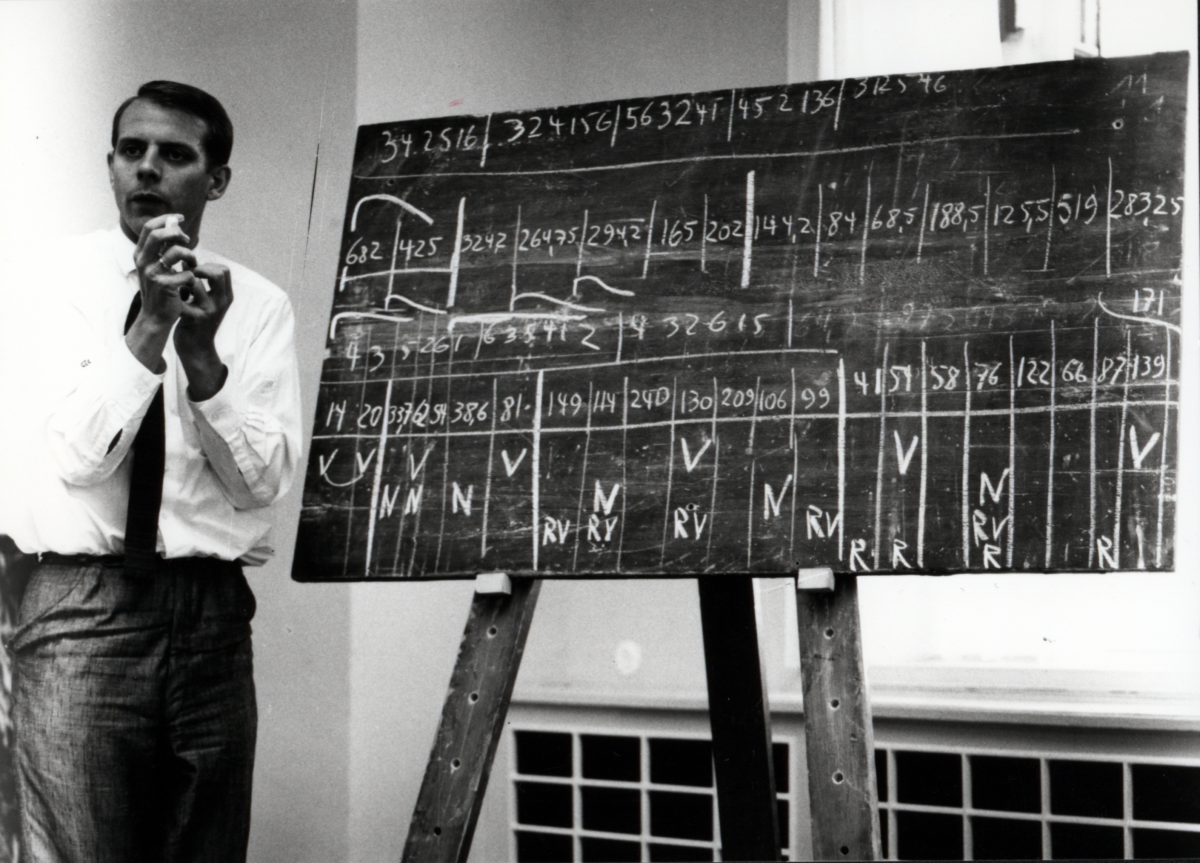 342516 324156 563241 452136 312546 11
682 425 324,2 264,75 294,2 165 202 144,2 84 68,5 188,5 125,5 519 283,25
171
4 3 5 2 6 1 6 3 5 4 1 2 4 3 2 6 1 5
14 20 33,7 62 54 38,6 81 149 114 240 130 209 106 99 41 51 58 76 122 66 87 139
V V V V V V V
N N N N N N
RV RV RV RV RV
R R R R